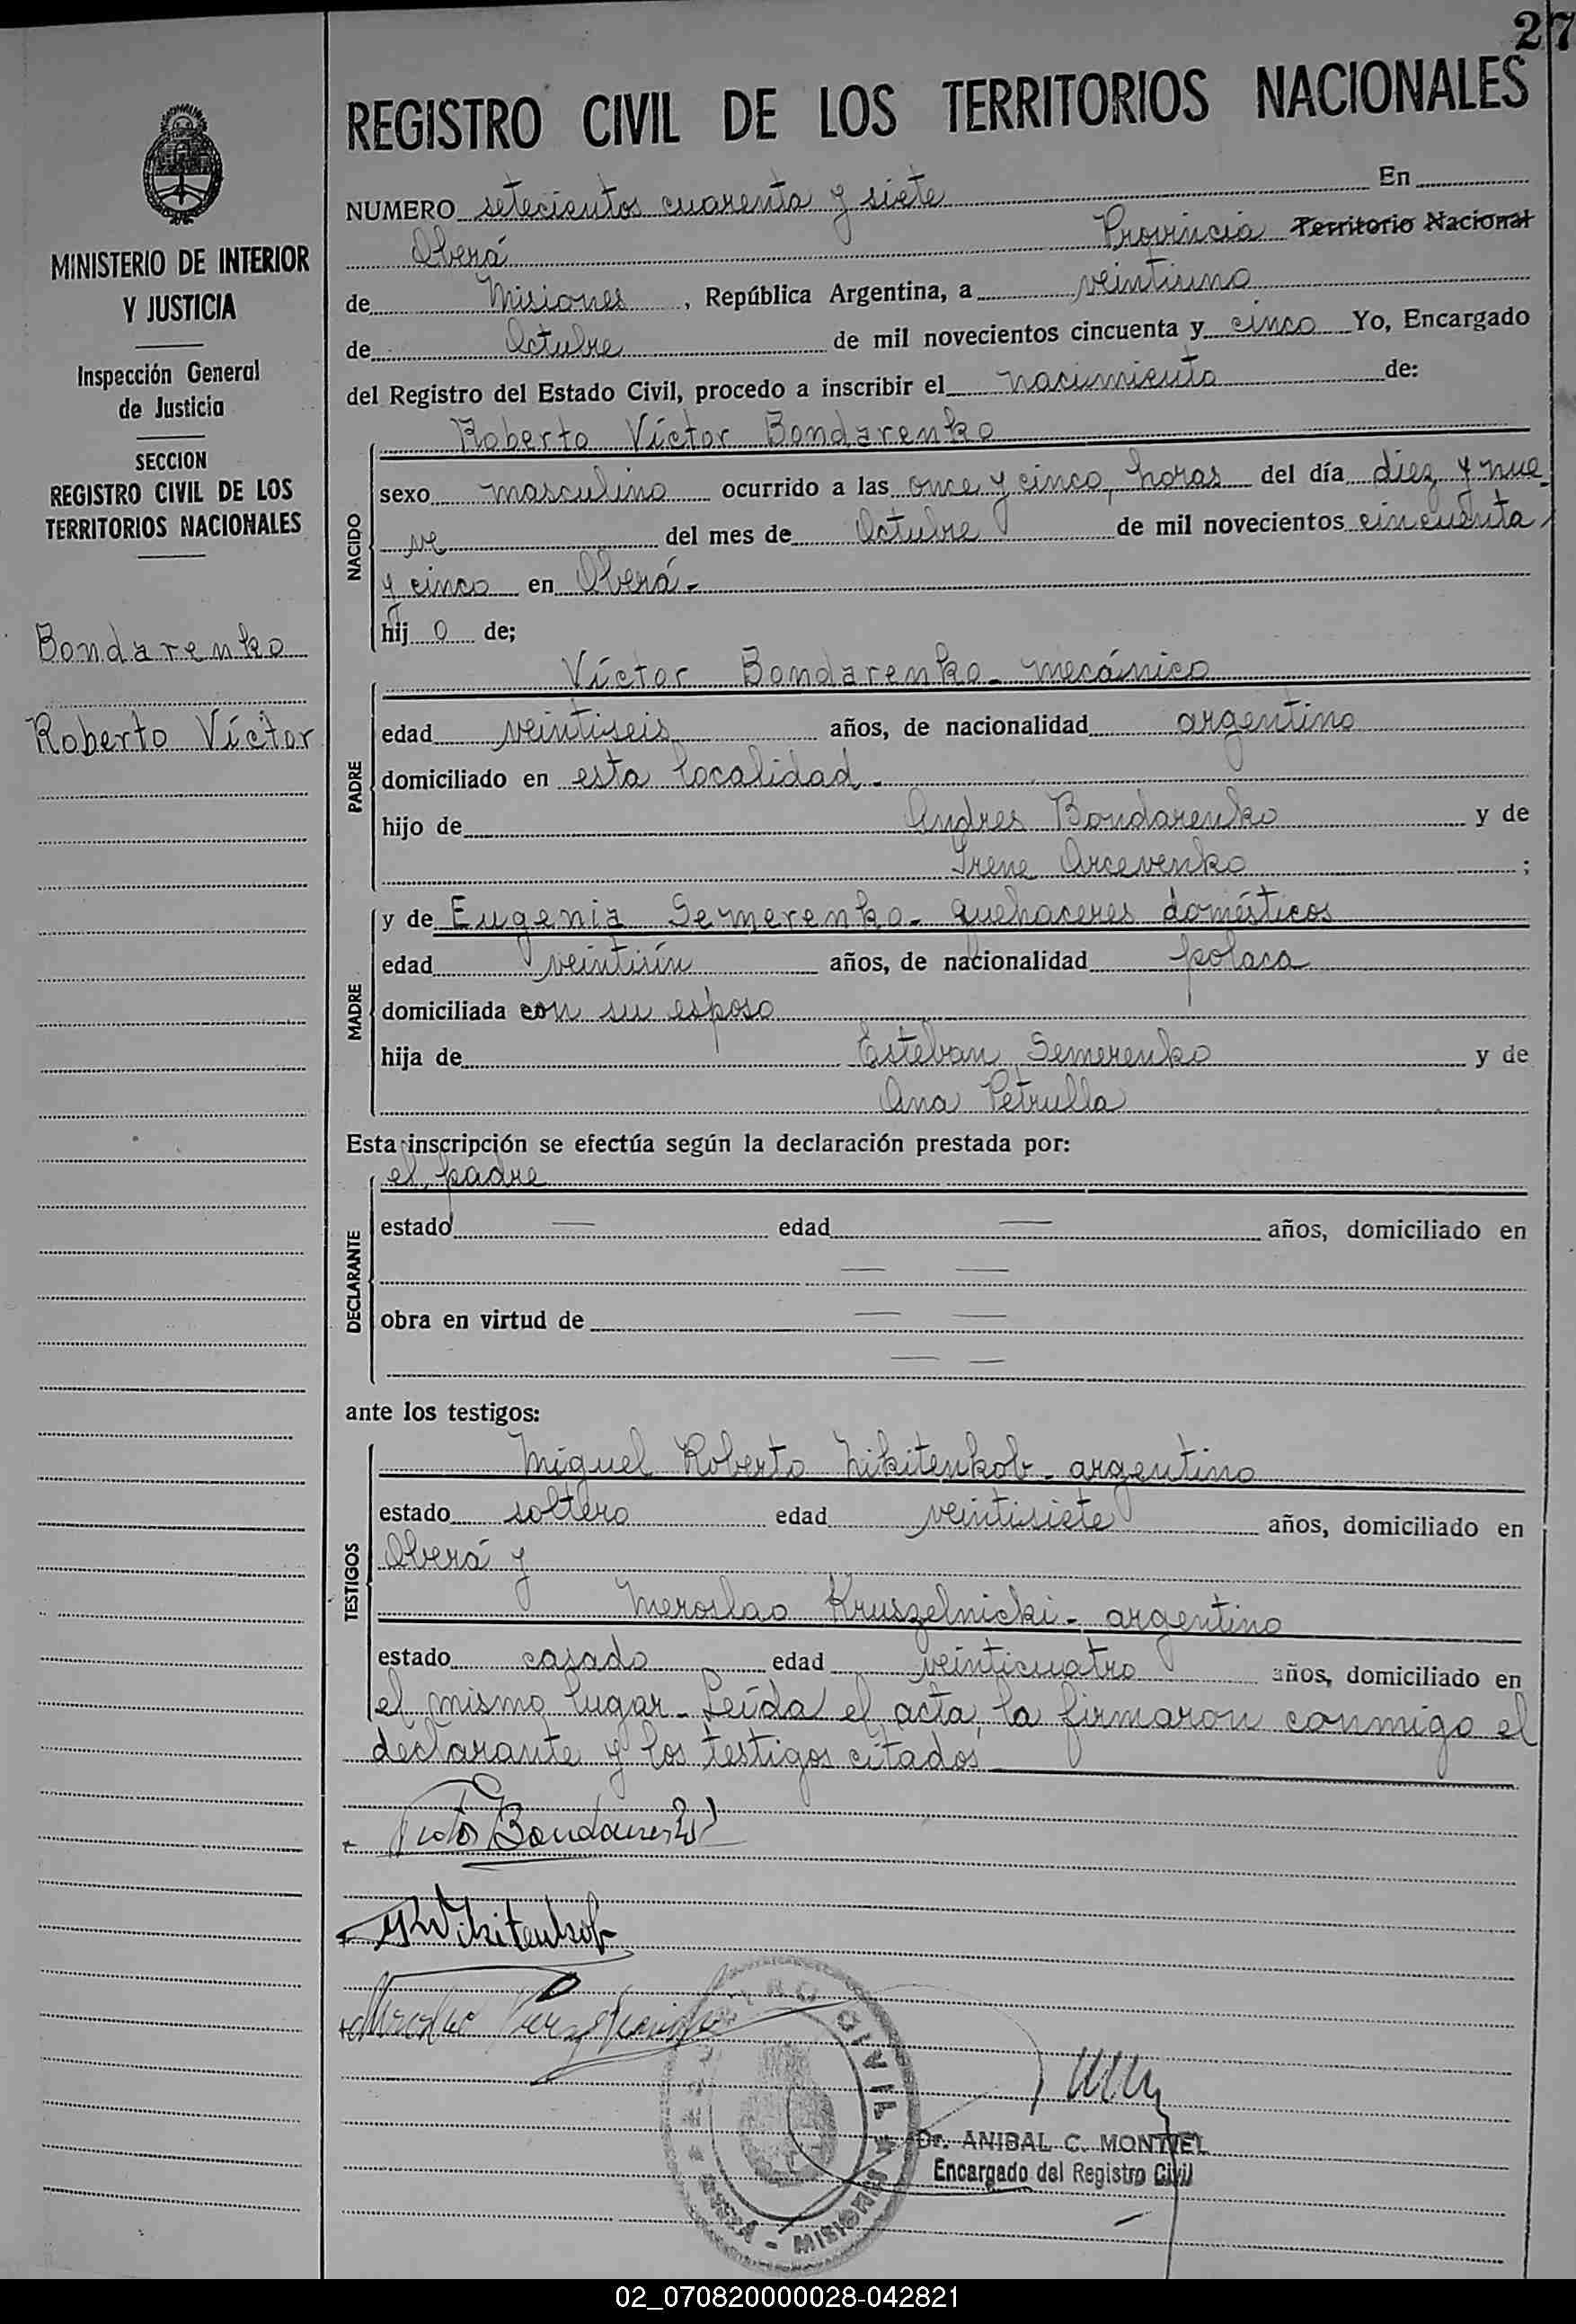 27
REGISTRO CIVIL DE LOS TERRITORIOS NACIONALES
MINISTERIO DE INTERIOR
Y JUSTICIA
Inspección General
de Justicia
SECCION
REGISTRO CIVIL DE LOS
TERRITORIOS NACIONALES
Bondarenko
Roberto Víctor
NUMERO setecientos cuarenta y siete En
Oberá Provincia Territorio Nacional
de Misiones, República Argentina, a veintiuno
de Octubre de mil novecientos cincuenta y cinco Yo, Encargado
del Registro del Estado Civil, procedo a inscribir el nacimiento de:
NACIDO
Roberto Víctor Bondarenko
sexo masculino ocurrido a las once y cinco, horas del día diez y nue-
ve del mes de Octubre de mil novecientos cincuenta
y cinco en Oberá-
hijo de;
PADRE
Víctor Bondarenko- mecánico
edad veintiseis años, de nacionalidad argentino
domiciliado en esta localidad-
hijo de Andres Bondarenko y de
Irene Arcevenko ;
MADRE
y de Eugenia Semerenko- quehaceres domésticos
edad veintiún años, de nacionalidad polaca
domiciliada con su esposo
hija de Esteban Semerenko y de
Ana Petrulla
Esta inscripción se efectúa según la declaración prestada por:
DECLARANTE
el padre
estado — edad — años, domiciliado en
— —
obra en virtud de — —
— —
ante los testigos:
TESTIGOS
Miguel Roberto Nikitenkob- argentino
estado soltero edad veintisiete años, domiciliado en
Oberá y
Meroslao Kruszelnicki- argentino
estado casado edad veinticuatro años, domiciliado en
el mismo lugar- Leída el acta, la firmaron conmigo el
declarante y los testigos citados
Victor Bondarenko
MRNikitenkob
REGISTRO CIVIL
OBERÁ - MISIONES
Dr. ANIBAL C. MONTIEL
Encargado del Registro Civil
02_070820000028-042821